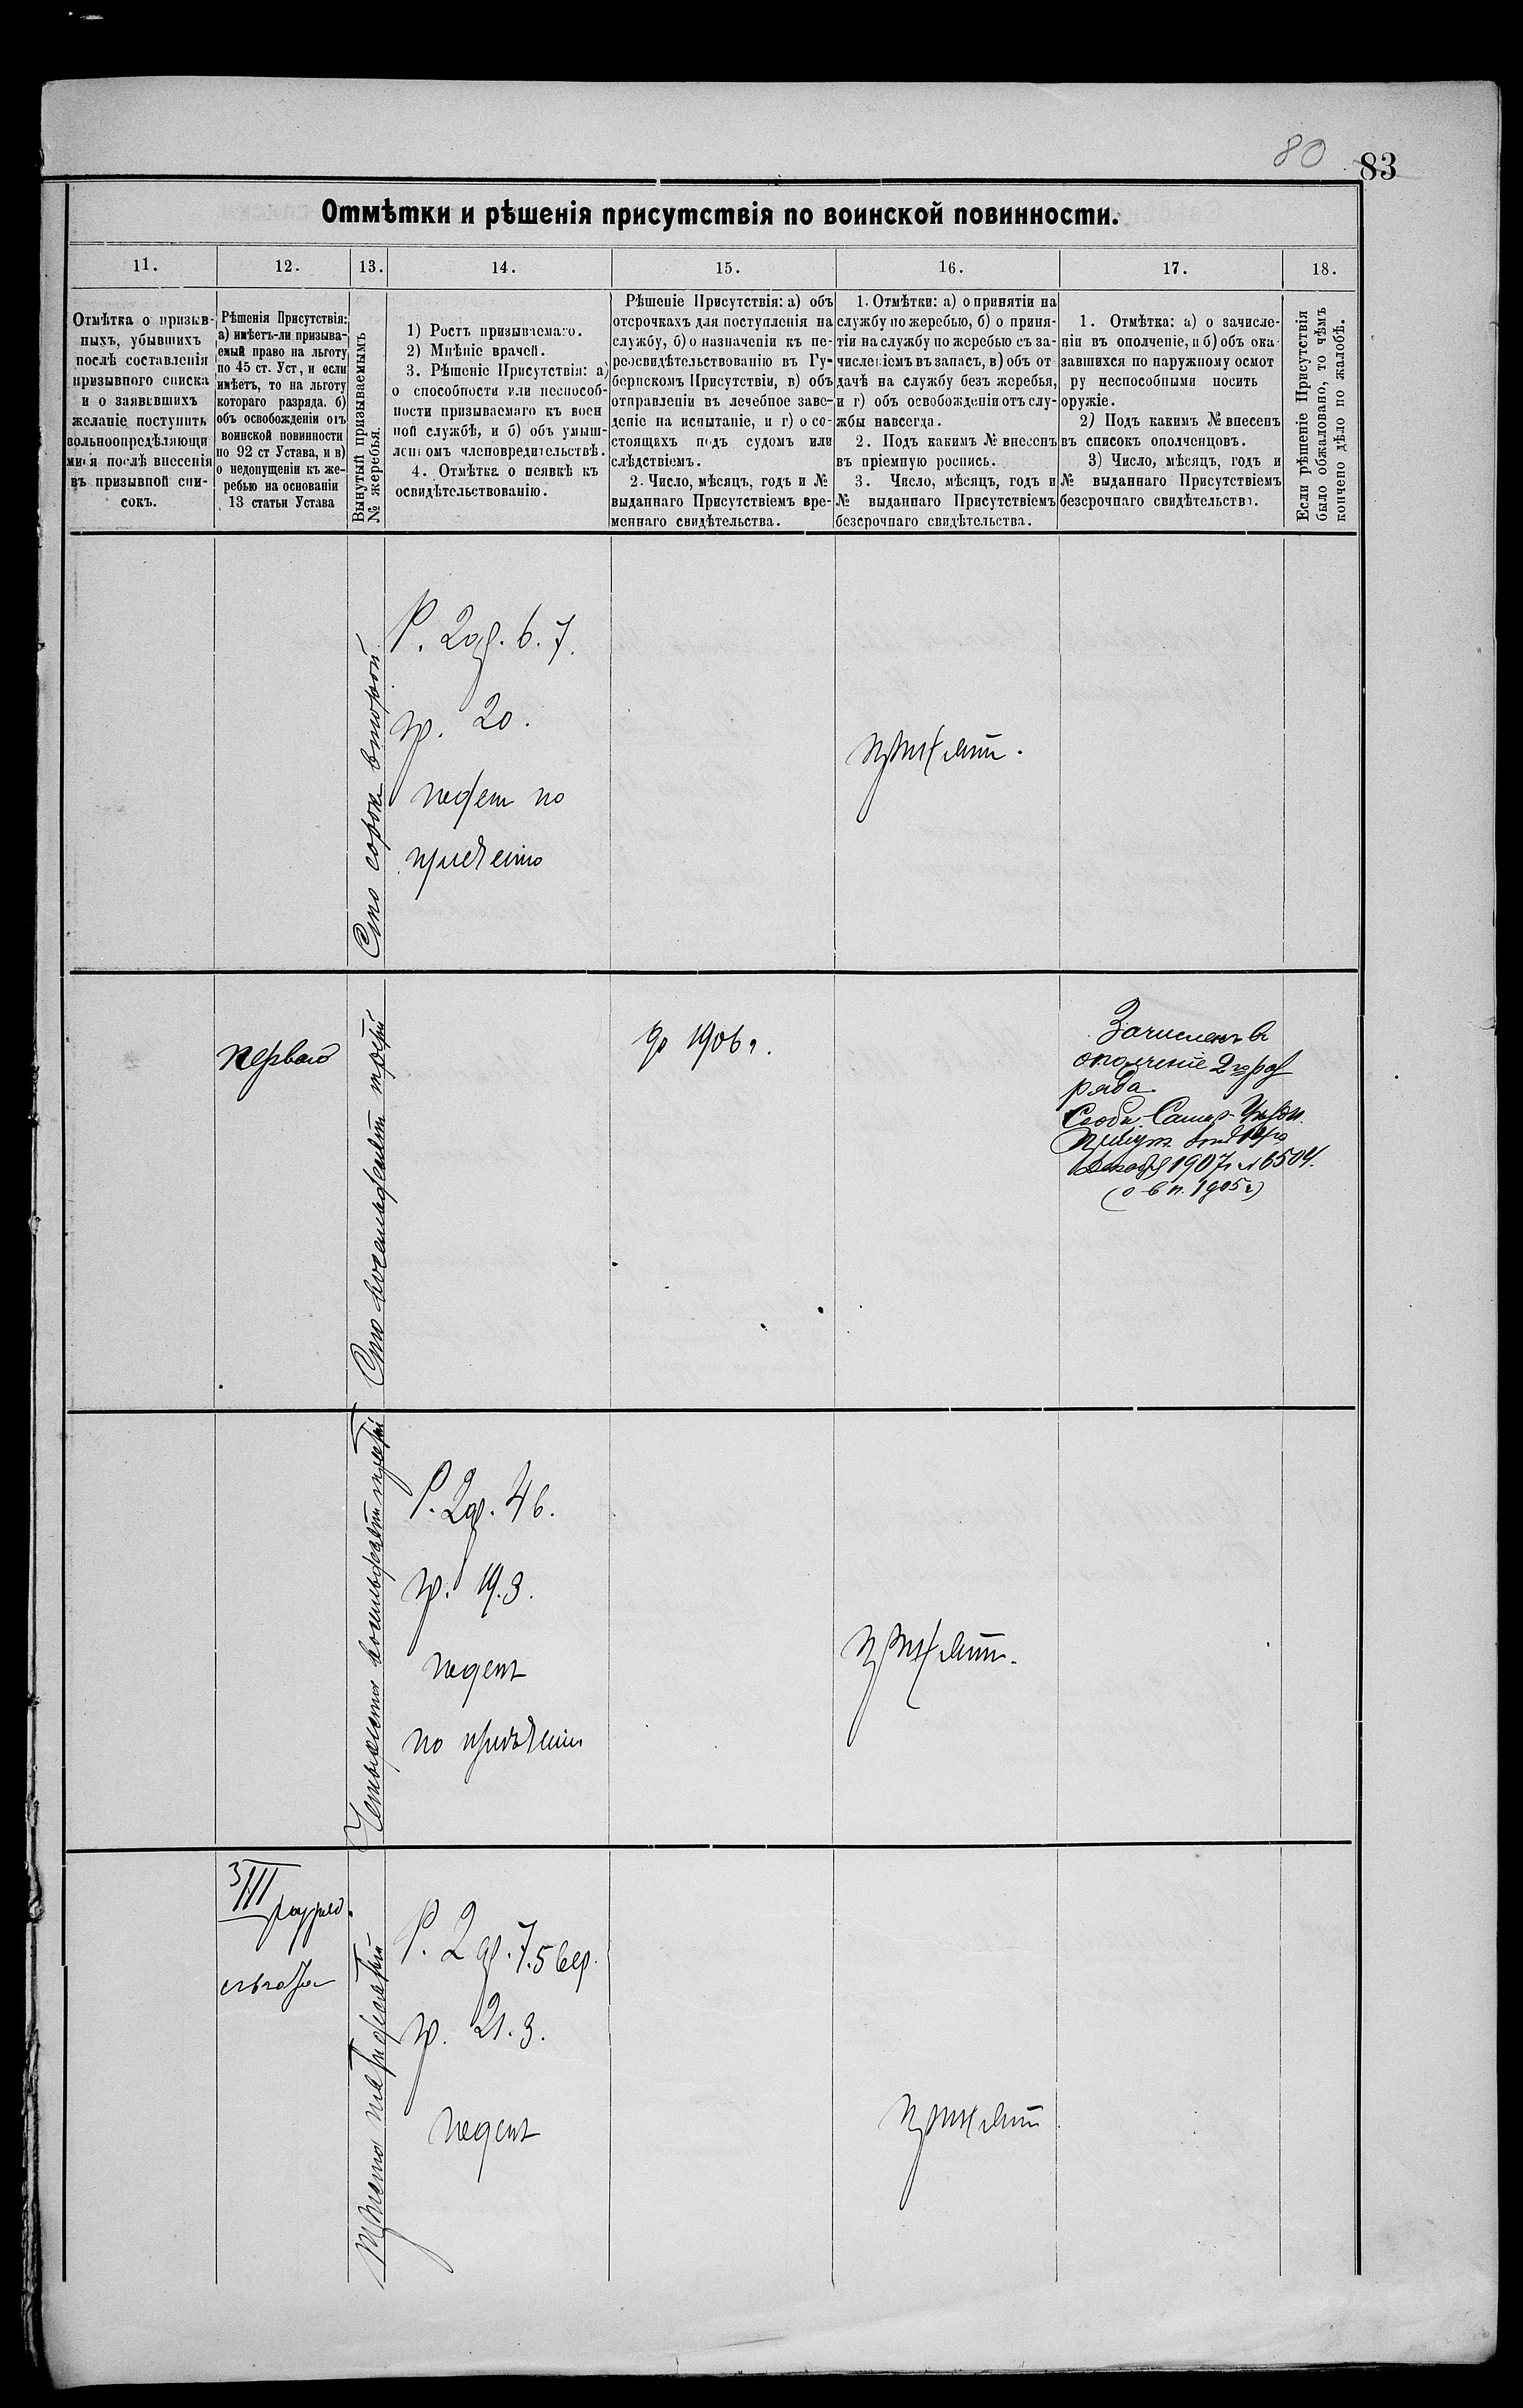 80
83
Отмѣтки и рѣшенія присутствія по воинской повинности.
11.
12.
13.
14.
15.
16.
17.
18.
Отмѣтка о призыв-
ныхъ, убывшихъ
послѣ составленія
призывного списка
и о заявившихъ
желаніе поступить
вольноопредѣляющи
мися послѣ внесенія
въ призывной спи-
сокъ.
Рѣшенія Присутствія:
а) имѣетъ-ли призыва-
емый право на льготу
по 45 ст. Уст, и если
имѣетъ, то на льготу
котораго разряда. б)
объ освобожденіи отъ
воинской повинности
по 92 ст Устава, и в)
о недопущеніи къ же-
ребью на основаніи
13 статьи Устава
Вынутый призываемымъ
№ жеребья.
1) Ростъ призываемаго.
2) Мнѣніе врачей.
3. Рѣшеніе Присутствія: а)
о способности или неспособ-
ности призываемаго къ воен
ной службѣ, и б) объ умыш-
ленномъ членовредительствѣ.
4. Отмѣтка о неявкѣ къ
освидѣтельствованію.
Рѣшеніе Присутствія: а) объ
отсрочкахъ для поступленія на
службу, б) о назначеніи къ пе-
реосвидѣтельствованію въ Гу-
бернскомъ Присутствіи, в) объ
отправленіи въ лечебное заве-
деніе на испытаніе, и г) о со-
стоящахъ подъ судомъ или
слѣдствіемъ.
2. Число, мѣсяцъ, годъ и №
выданнаго Присутствіемъ вре-
меннаго свидѣтельства.
1. Отмѣтки: а) о принятіи на
службу по жеребью, б) о приня-
тіи на службу по жеребью съ за-
численіемъ въ запасъ, в) объ от
дачѣ на службу безъ жеребья,
и г) объ освобожденіи отъ слу-
жбы навсегда.
2. Подъ какимъ № внесенъ
въ пріемную роспись.
3. Число, мѣсяцъ, годъ и
№ выданнаго Присутствіемъ
безсрочнаго свидѣтельства.
1. Отмѣтка: а) о зачисле-
ніи въ ополченіе, и б) объ ока-
завшихся по наружному осмот
ру неспособными носить
оружіе.
2) Подъ какимъ № внесенъ
въ списокъ ополченцовъ.
3) Число, мѣсяцъ, годъ и
№ выданнаго Присутствіемъ
безсрочнаго свидѣтельства.
Если рѣшеніе Присутствія
было обжаловано, то чѣмъ
кончено дѣло по жалобѣ.
Сто сорок второй
Р. 2 ар. 6. 7.
гр. 20.
годен по
принят.
перваго
Сто восемьдесят третій
до 1906 г.
Зачислен в
ополченіе 2го раз
ряда.
1907 г № 6504.
1905 г)
Четыреста восемьдесят третій
Р. 2 ар. 4 в.
гр. 19. 3.
годен
по
принят.
III разряд.
льгота
Триста пятидесятый
Р. 2 ар. 7. 5 вер.
гр. 21. 3.
годен
принят